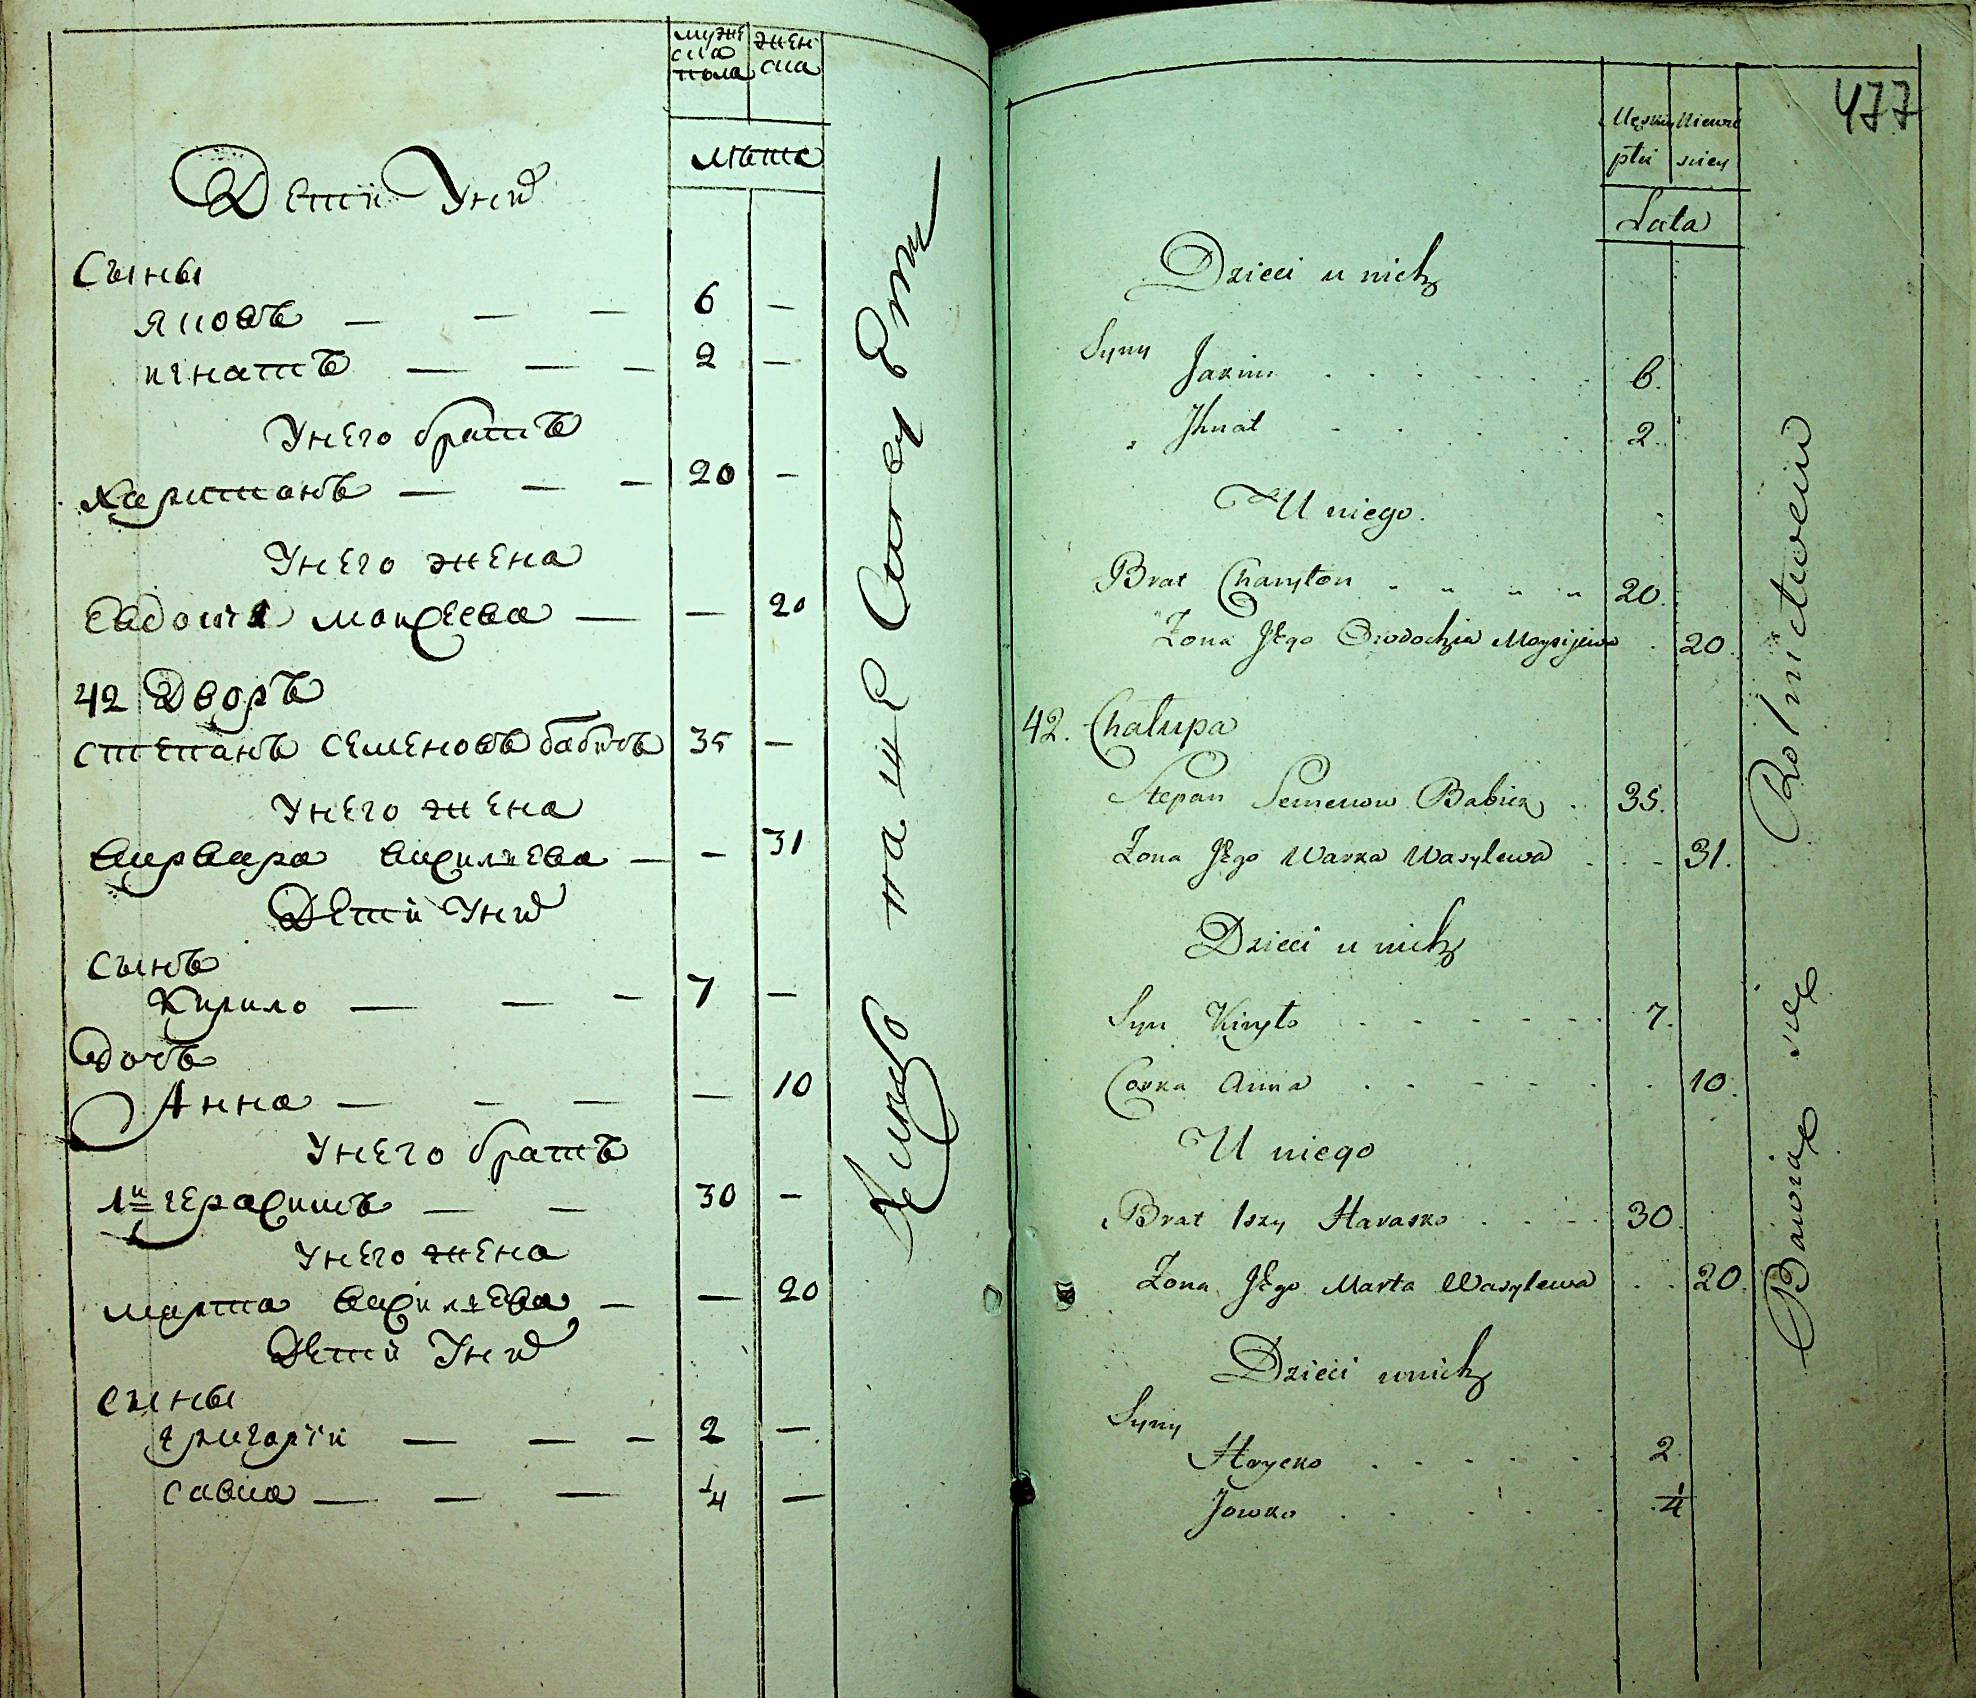 муже
ска
пола
жен
ска
лѣта
Дети У них
Сыны
яковъ — — — 6 —
игнатъ — — — 2 —
У него братъ
Харитонъ — — — 20 —
У него жена
Евдокия Моисеева — — 20
42 Дворъ
степанъ семеновъ бабичъ 35 —
У него жена
варвара василиева — — 31
Дети У них
Сынъ
Кирило — — — 7 —
Дочъ
Анна — — — — 10
У него братъ
1й герасимъ — — 30 —
У него жена
марта василиева — — 20
Дети У них
сыны
григорий — — — 2 —
савка — — — 1/4 —
477
Męzkiey
płci
Lata
Dzieci u nich
Syny Jakim . . . . . . 6.
„ Ihnat . . . . . 2.
U niego.
Brat Charyton . „ „ „ 20.
Zona Jego Owdochia Moysijewa . 20.
42. Chałupa
Stepan Semenow Babicz . 35.
Zona Jego Warka Wasylewa . . - 31.
Dzieci u nich
Syn Kiryło . . . . . . 7.
Corka Anna . . . . . . 10.
U niego
Brat 1szy Haraśko . . . . 30.
Zona Jego Marta Wasylewa . . 20.
Dzieci unich
Syny
Hryćko . . . . . 2.
Jowko . . . . . 1/4
Bawią się Rolnictwem